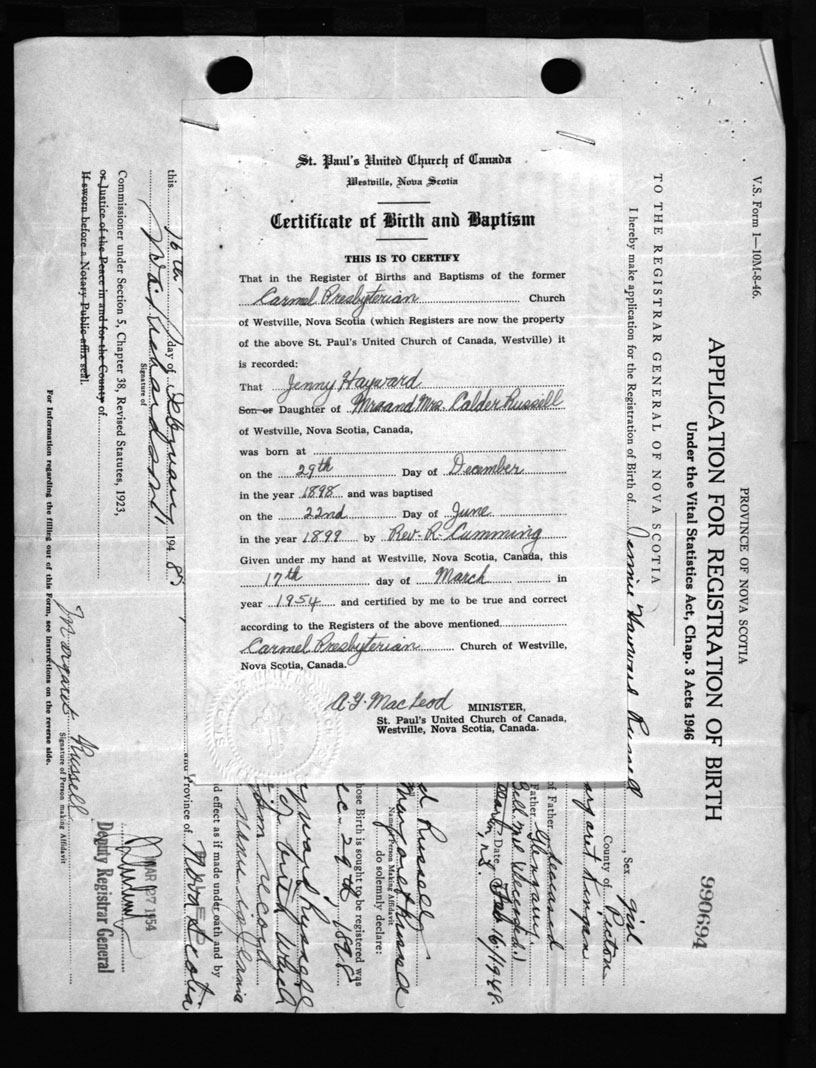 St. Paul's United Church of Canada
Westville, Nova Scotia
Certificate of Birth and Baptism
THIS IS TO CERTIFY
That in the Register of Births and Baptisms of the former
Carmel Presbyterian Church
of Westville, Nova Scotia (which Registers are now the property
of the above St. Paul's United Church of Canada, Westville) it
is recorded:
That Jenny Hayward
Son or Daughter of Mr. and Mrs. Calder Russell
of Westville, Nova Scotia, Canada,
was born at
on the 29th Day of December
in the year 1898 and was baptised
on the 22nd Day of June
in the year 1899 by Rev. R. Cumming
Given under my hand at Westville, Nova Scotia, Canada, this
17th day of March in
year 1954 and certified by me to be true and correct
according to the Registers of the above mentioned
Carmel Presbyterian Church of Westville,
Nova Scotia, Canada.
A. Y. MacLeod MINISTER,
St. Paul's United Church of Canada,
Westville, Nova Scotia, Canada.
V.S. Form 1—10M-8-46.
PROVINCE OF NOVA SCOTIA
APPLICATION FOR REGISTRATION OF BIRTH 990694
Under the Vital Statistics Act, Chap. 3 Acts 1946
TO THE REGISTRAR GENERAL OF NOVA SCOTIA
I hereby make application for the Registration of Birth of Jennie Hayward Russell, Sex girl
County of Pictou
of Father
Father Glengarry
Date Feb 16/1948.
Russell
Margaret Russell
Name of Person Making Affidavit
do solemnly declare:
hose Birth is sought to be registered was
Dec. 29th 1898
Russell
of birth
record
d effect as if made under oath and by
and Province of Nova Scotia
this 16th day of February 1948
Signature of
Commissioner under Section 5, Chapter 38, Revised Statutes, 1923,
or Justice of the Peace in and for the County of
If sworn before a Notary Public affix seal.
Margaret Russell
Signature of Person making Affidavit
MAR 27 1954
Deputy Registrar General
For Information regarding the filling out of this Form, see instructions on the reverse side.